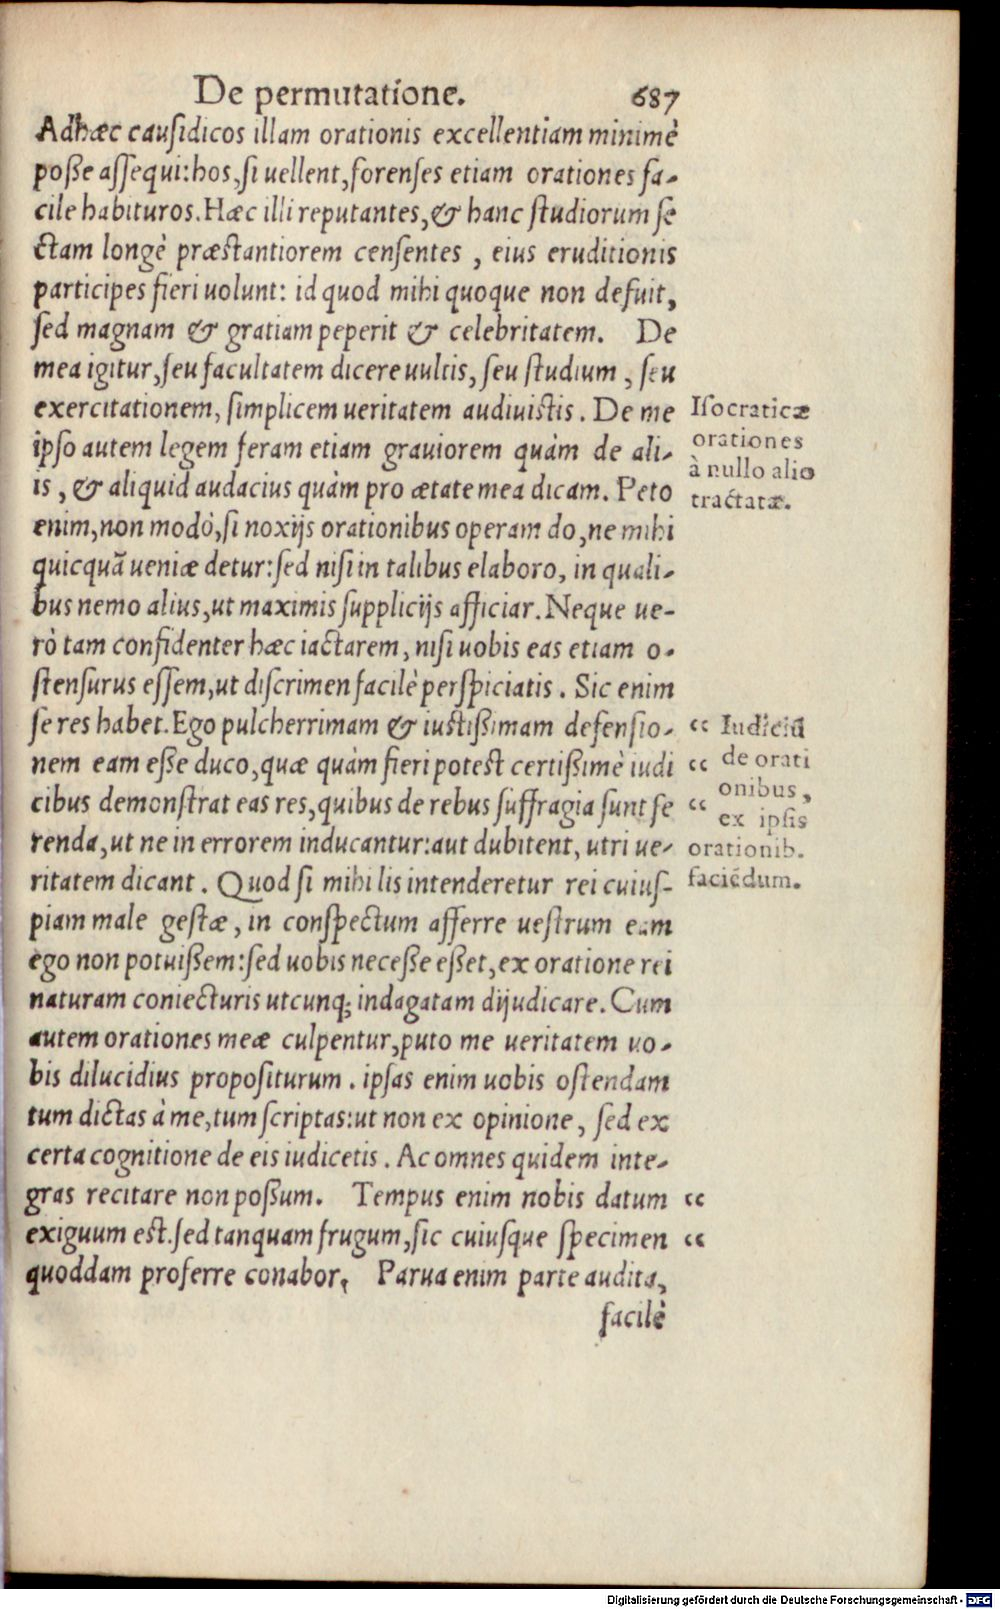 De permutatione. 687
Adhæc causidicos illam orationis excellentiam minimè
posse assequi: hos, si uellent, forenses etiam orationes fa-
cile habituros. Hæc illi reputantes, & hanc studiorum se
ctam longè præstantiorem censentes, eius eruditionis
participes fieri uolunt: id quod mihi quoque non defuit,
sed magnam & gratiam peperit & celebritatem. De
mea igitur, seu facultatem dicere uultis, seu studium, seu
exercitationem, simplicem ueritatem audiuistis. De me
ipso autem legem feram etiam grauiorem quàm de ali-
is, & aliquid audacius quàm pro ætate mea dicam. Peto
enim, non modò, si noxijs orationibus operam do, ne mihi
quicquã ueniæ detur: sed nisi in talibus elaboro, in quali-
bus nemo alius, ut maximis supplicijs afficiar. Neque ue-
rò tam confidenter hæc iactarem, nisi uobis eas etiam o-
stensurus essem, ut discrimen facilè perspiciatis. Sic enim
se res habet. Ego pulcherrimam & iustissimam defensio-
nem eam esse duco, quæ quàm fieri potest certissimè iudi
cibus demonstrat eas res, quibus de rebus suffragia sunt fe
renda, ut ne in errorem inducantur: aut dubitent, utri ue-
ritatem dicant. Quod si mihi lis intenderetur rei cuius-
piam male gestæ, in conspectum afferre uestrum eam
ego non potuissem: sed uobis necesse esset, ex oratione rei
naturam coniecturis utcunq; indagatam dijudicare. Cum
autem orationes meæ culpentur, puto me ueritatem uo-
bis dilucidius propositurum. ipsas enim uobis ostendam
tum dictas à me, tum scriptas: ut non ex opinione, sed ex
certa cognitione de eis iudicetis. Ac omnes quidem inte-
gras recitare non possum. Tempus enim nobis datum “
exiguum est. sed tanquam frugum, sic cuiusque specimen “
quoddam proferre conabor. Parua enim parte audita,
facilè
Isocraticæ
orationes
à nullo alio
tractatæ.
“ Iudiciũ
“ de orati
onibus,
“ ex ipsis
orationib.
faciēdum.
Digitalisierung gefördert durch die Deutsche Forschungsgemeinschaft - DFG